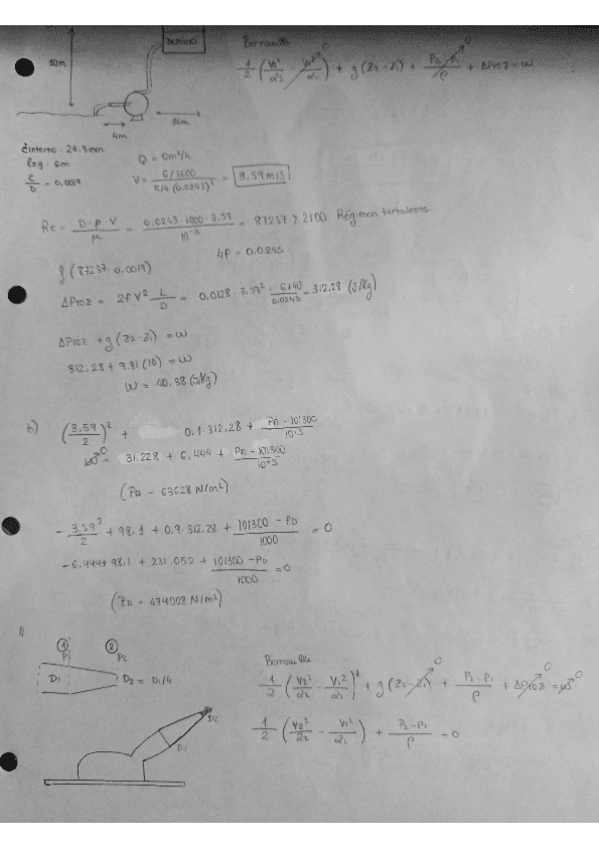 DEPOSITO
10m
4m
36m
Bernouilli
1/2 (V2²/α2 - V1²/α1)⁰ + g(Z2-Z1) + P2-P1/ρ ⁰ + ΔProz = W
Dinterno = 24.3mm
Leq = 6m
ε/D = 0.0019
Q = 6m³/h
V = 6/3600 / π/4 (0.0243)² = 3.59 m/s
Re = D·ρ·V / μ = 0.0243·1000·3.59 / 10⁻³ = 87237 > 2100 Régimen turbulento
4f = 0.0255
f (87237, 0.0019)
ΔProz = 2fV² L/D = 0.0128·3.59²· 6+40/0.0243 = 312.28 (J/kg)
ΔProz + g(Z2-Z1) = W
312.28 + 9.81(10) = W
W = 40.38 (J/kg)
b) (3.59/2)² + 0.1·312.28 + PA - 101300 / 10^3
W⁰ = 31.228 + 6.444 + PA - 101300 / 10^3
(PA = 63628 N/m²)
- 3.59²/2 + 98.1 + 0.9·312.28 + 101300 - PD / 1000 = 0
-6.444 + 98.1 + 281.052 + 101300 - PD / 1000 = 0
(PD = 474008 N/m²)
1 2
P1 P2
D1 D2 = D1/4
D2
D1
Bernouilli
1/2 (V2²/α2 - V1²/α1) + g(Z2-Z1)⁰ + P2-P1/ρ + ΔProz⁰ = W⁰
1/2 (V2²/α2 - V1²/α1) + P2-P1/ρ = 0